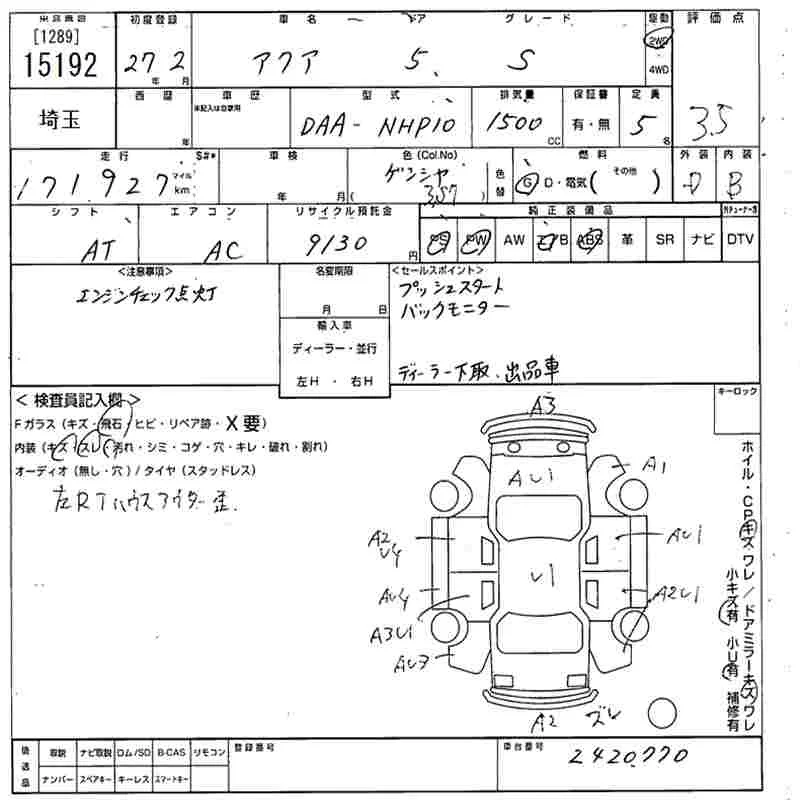 [1289]
15192
初度登録
27年 2月
車名
アクア
ドア
5
グレード
S
駆動
2WD
4WD
評価点
3.5
埼玉
西暦
年
車歴
未記入は自家用
型式
DAA-NHP10
排気量
1500 CC
保証書
有・無
定員
5名
走行 S#*
171,927 マイル km
車検
年 月(
色(Col.No)
ゲンシヤ
3S7 )
色替
燃料
G D・電気( その他 )
外装
D
内装
B
シフト
AT
エアコン
AC
リサイクル預託金
9130円
純正装備品
PS PW AW エアB ABS 革 SR ナビ DTV
<注意事項>
エンジンチェック点灯
名変期限
月 日
輸入車
ディーラー・並行
左H ・ 右H
<セールスポイント>
プッシュスタート
バックモニター
ディーラー下取、出品車
<検査員記入欄>
Fガラス(キズ・飛石/ヒビ・リペア跡・X要)
内装(キズ・スレ・汚れ・シミ・コゲ・穴・キレ・破れ・割れ)
オーディオ(無し・穴)/タイヤ(スタッドレス)
左Rタイハウスアウター歪
キーロック
A3
AU1
A1
A2
U4
AU1
U1
AU4
A2U1
A3U1
AU3
A2
ズレ
ホイル・CPキズ ワレ/ドアミラーキズ ワレ
小キズ有 小U有 補修有
後送品
取説 ナビ取説 ロム/SD B-CAS リモコン
ナンバー スペアキー キーレス スマートキー
登録番号
車台番号
2420770